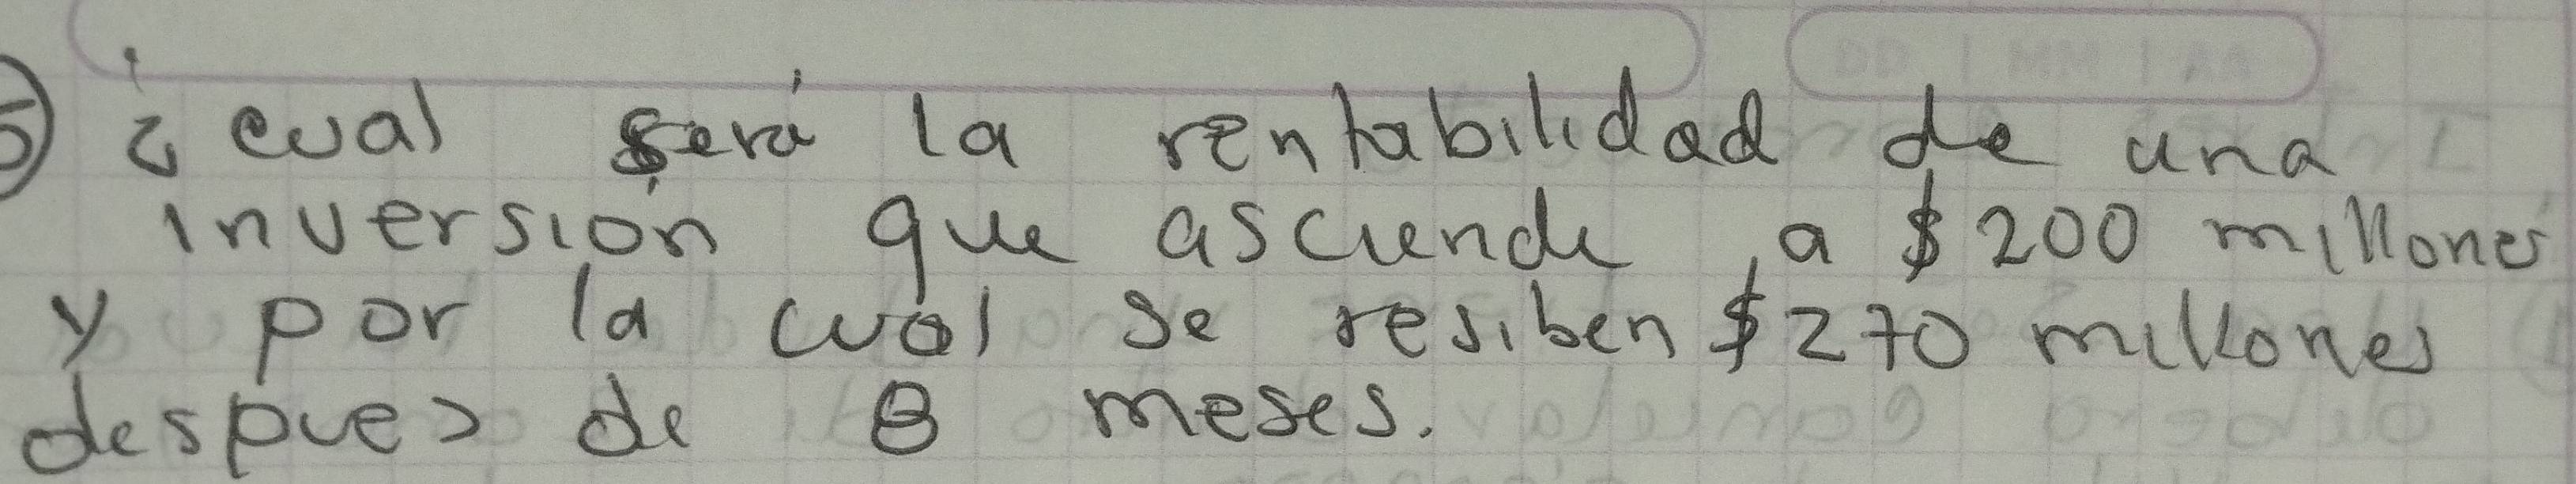 5) ¿cual será la rentabilidad de una
inversión que asciende a $200 millones
y por la cual se resiben $270 millones
despues de 8 meses.
DD | MM | AA